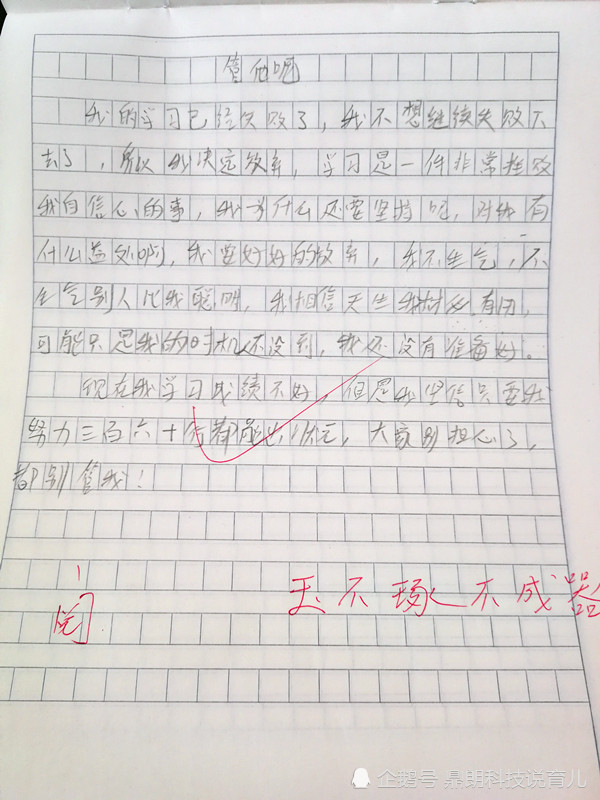 管他呢
我的学习已经失败了，我不想继续失败下
去了，所以我决定放弃，学习是一件非常挫败
我自信心的事，我为什么还要坚持呢，对我有
什么益处啊，我要好好的放弃，我不生气，不
生气别人比我聪明，我相信天生我材必有用，
可能只是我的时机还没到，我还没有准备好。
现在我学习成绩不好，但是我坚信只要我
努力三百六十行都能出状元，大家别担心了，
都别管我！
阅
玉不琢不成器
企鹅号 鼎朝科技说育儿